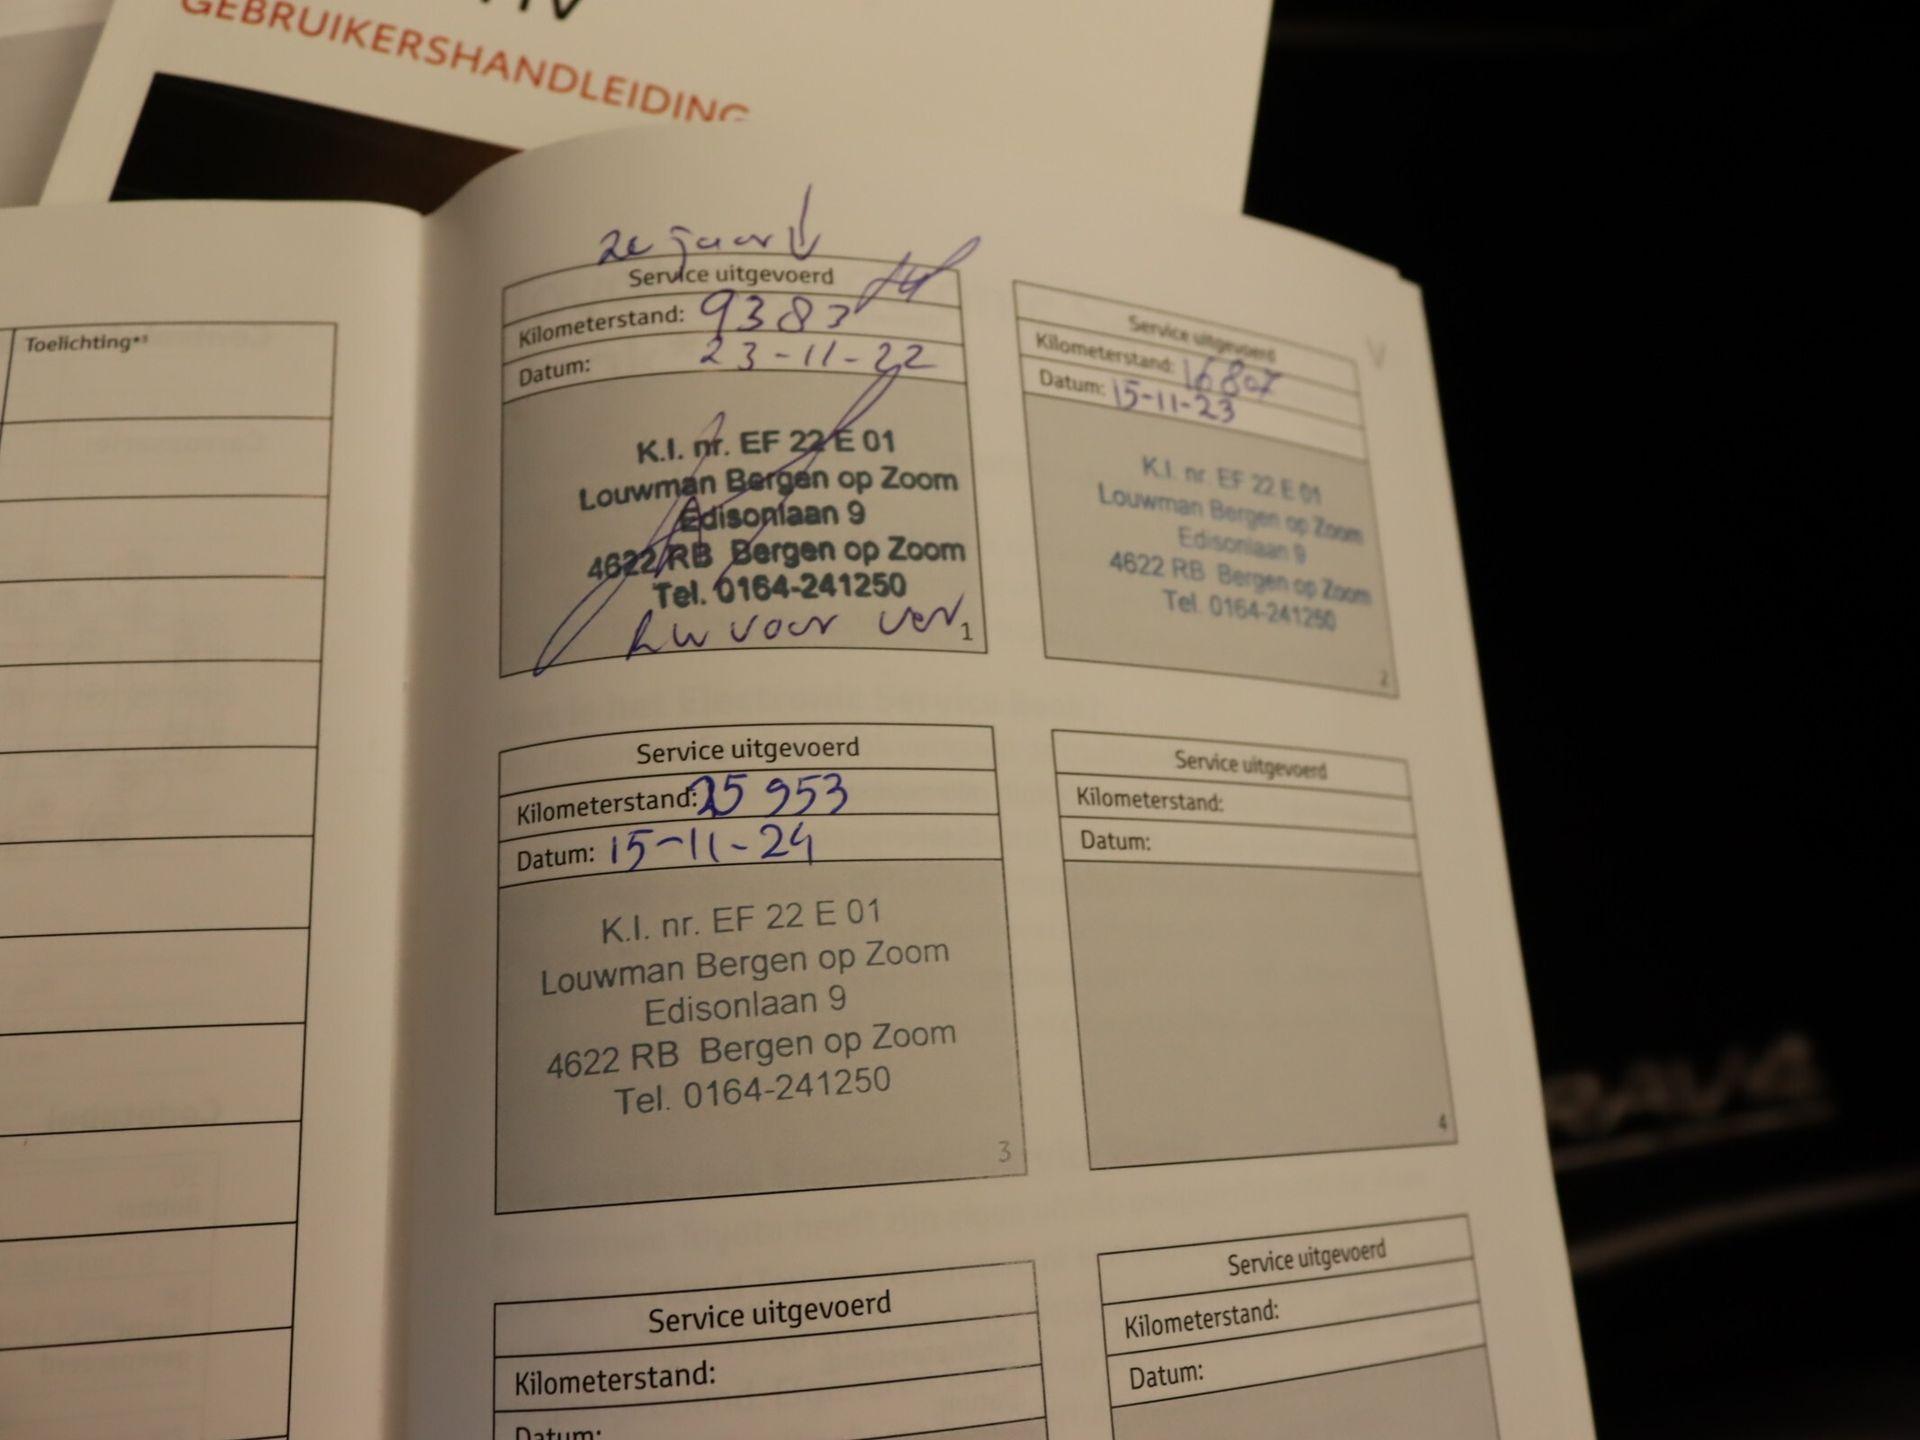 GEBRUIKERSHANDLEIDING
Toelichting*³
2e jaar
Service uitgevoerd
Kilometerstand: 9383
Datum: 23-11-22
K.I. nr. EF 22 E 01
Louwman Bergen op Zoom
Edisonlaan 9
4622 RB Bergen op Zoom
Tel. 0164-241250
voor
1
Service uitgevoerd
Kilometerstand: 16807
Datum: 15-11-23
K.I. nr. EF 22 E 01
Louwman Bergen op Zoom
Edisonlaan 9
4622 RB Bergen op Zoom
Tel. 0164-241250
2
Service uitgevoerd
Kilometerstand: 25953
Datum: 15-11-24
K.I. nr. EF 22 E 01
Louwman Bergen op Zoom
Edisonlaan 9
4622 RB Bergen op Zoom
Tel. 0164-241250
3
Service uitgevoerd
Kilometerstand:
Datum:
4
Service uitgevoerd
Kilometerstand:
Datum:
Service uitgevoerd
Kilometerstand:
Datum:
RAV4